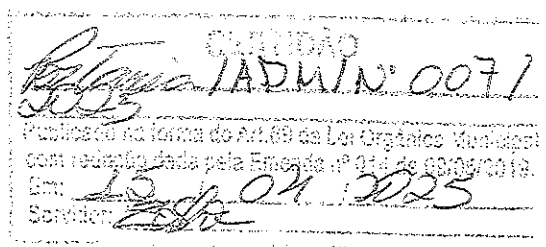 CERTIDÃO
Portaria /ADM/Nº 007/
2025
Publicado na forma do Art.69 da Lei Orgânica Municipal
com redação dada pela Emenda nº 014 de 09/05/2019.
Em: 15 / 04 / 2025
Servidor: